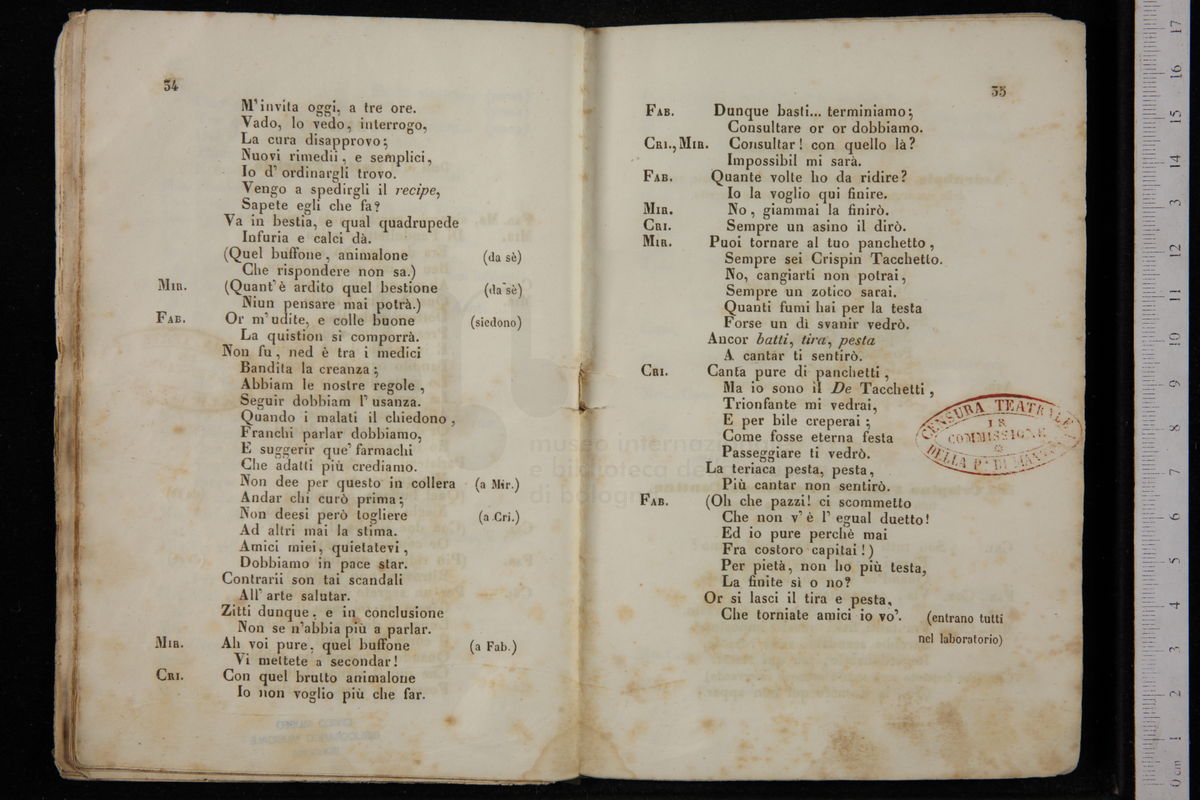 34
M'invita oggi, a tre ore.
Vado, lo vedo, interrogo,
La cura disapprovo;
Nuovi rimedii, e semplici,
Io d' ordinargli trovo.
Vengo a spedirgli il recipe,
Sapete egli che fa?
Va in bestia, e qual quadrupede
Infuria e calci dà.
(Quel buffone, animalone (da sè)
Che rispondere non sa.)
MIR. (Quant' è ardito quel bestione (da sè)
Niun pensare mai potrà.)
FAB. Or m' udite, e colle buone (siedono)
La quistion si comporrà.
Non fu, ned è tra i medici
Bandita la creanza;
Abbiam le nostre regole,
Seguir dobbiam l' usanza.
Quando i malati il chiedono,
Franchi parlar dobbiamo,
E suggerir que' farmachi
Che adatti più crediamo.
Non dee per questo in collera (a Mir.)
Andar chi curò prima;
Non deesi però togliere (a Cri.)
Ad altri mai la stima.
Amici miei, quietatevi,
Dobbiamo in pace star.
Contrarii son tai scandali
All' arte salutar.
Zitti dunque, e in conclusione
Non se n'abbia più a parlar.
MIR. Ah voi pure, quel buffone (a Fab.)
Vi mettete a secondar!
CRI. Con quel brutto animalone
Io non voglio più che far.
35
FAB. Dunque basti... terminiamo;
Consultare or or dobbiamo.
CRI., MIR. Consultar! con quello là?
Impossibil mi sarà.
FAB. Quante volte ho da ridire?
Io la voglio qui finire.
MIR. No, giammai la finirò.
CRI. Sempre un asino il dirò.
MIR. Puoi tornare al tuo panchetto,
Sempre sei Crispin Tacchetto.
No, cangiarti non potrai,
Sempre un zotico sarai.
Quanti fumi hai per la testa
Forse un dì svanir vedrò.
Ancor batti, tira, pesta
A cantar ti sentirò.
CRI. Canta pure di panchetti,
Ma io sono il De Tacchetti,
Trionfante mi vedrai,
E per bile creperai;
Come fosse eterna festa
Passeggiare ti vedrò.
La teriaca pesta, pesta,
Più cantar non sentirò.
FAB. (Oh che pazzi! ci scommetto
Che non v' è l' egual duetto!
Ed io pure perchè mai
Fra costoro capitai!)
Per pietà, non ho più testa,
La finite sì o no?
Or si lasci il tira e pesta,
Che torniate amici io vo'. (entrano tutti
nel laboratorio)
CENSURA TEATRALE
I. R.
COMMISSIONE
museo internaz
e biblioteca de
di bologn